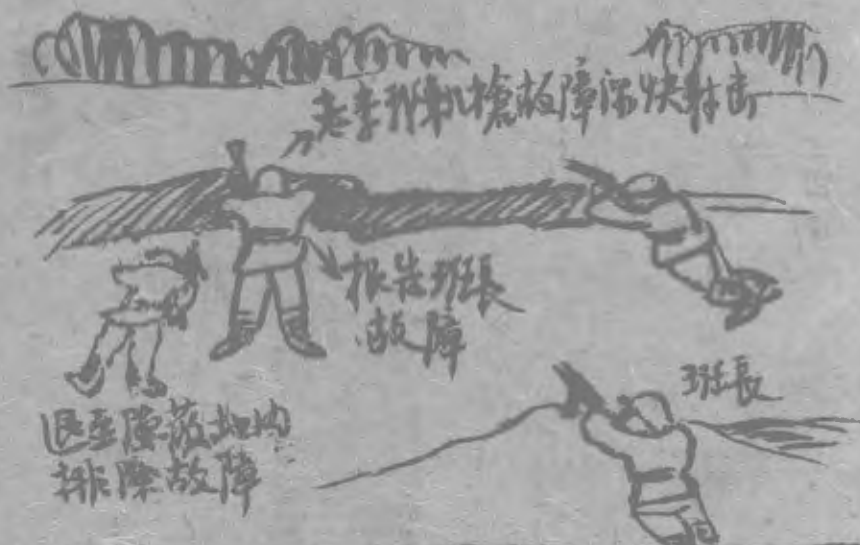 老李我机槍故障你快射击
报告班長
故障
班長
退至隐蔽地内
排除故障